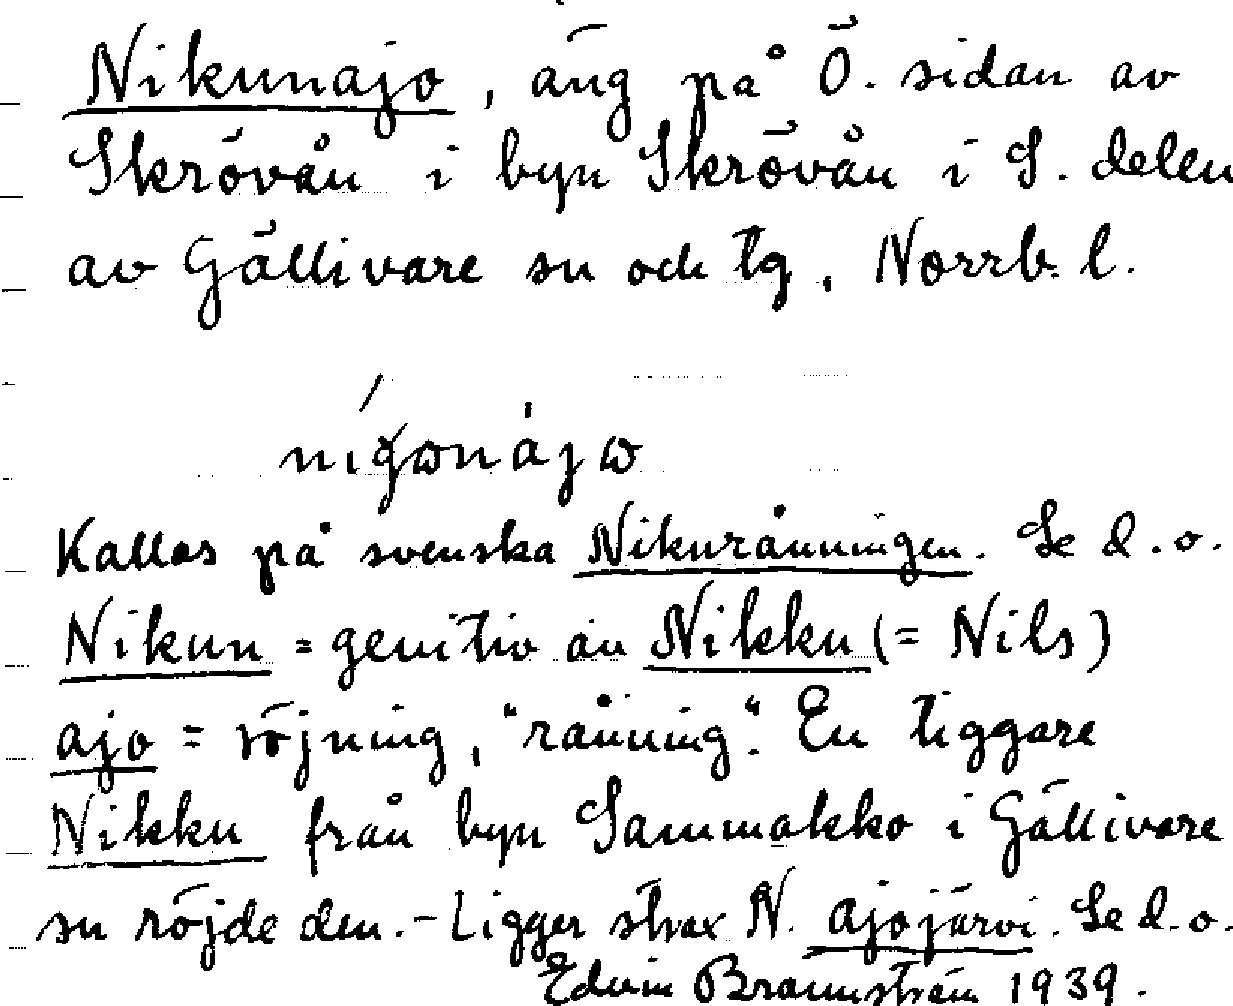 Nikunajo, äng på Ö. sidan av
Skrövån i byn Skrövån i S. delen
av Gällivare sn och tg, Norrb. l.
Kallas på svenska Nikuränningen. Se d. o.
Nikun = genitiv av Nikku (= Nils)
ajo = röjning, "ränning". En tiggare
Nikku från byn Sammakko i Gällivare
sn röjde den. - Ligger strax N. Ajojärvi. Se d. o.
Edvin Brännström 1939.